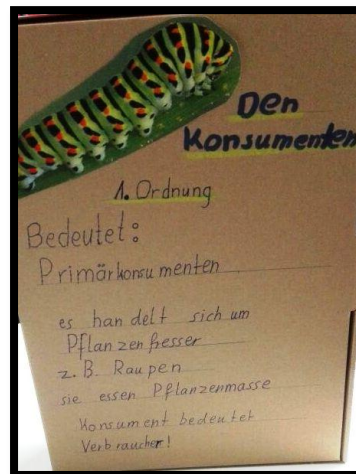 Den
Konsumenten
1. Ordnung
Bedeutet:
Primärkonsumenten
es handelt sich um
Pflanzenfresser
z. B. Raupen
sie essen Pflanzenmasse
Konsument bedeutet
Verbraucher!